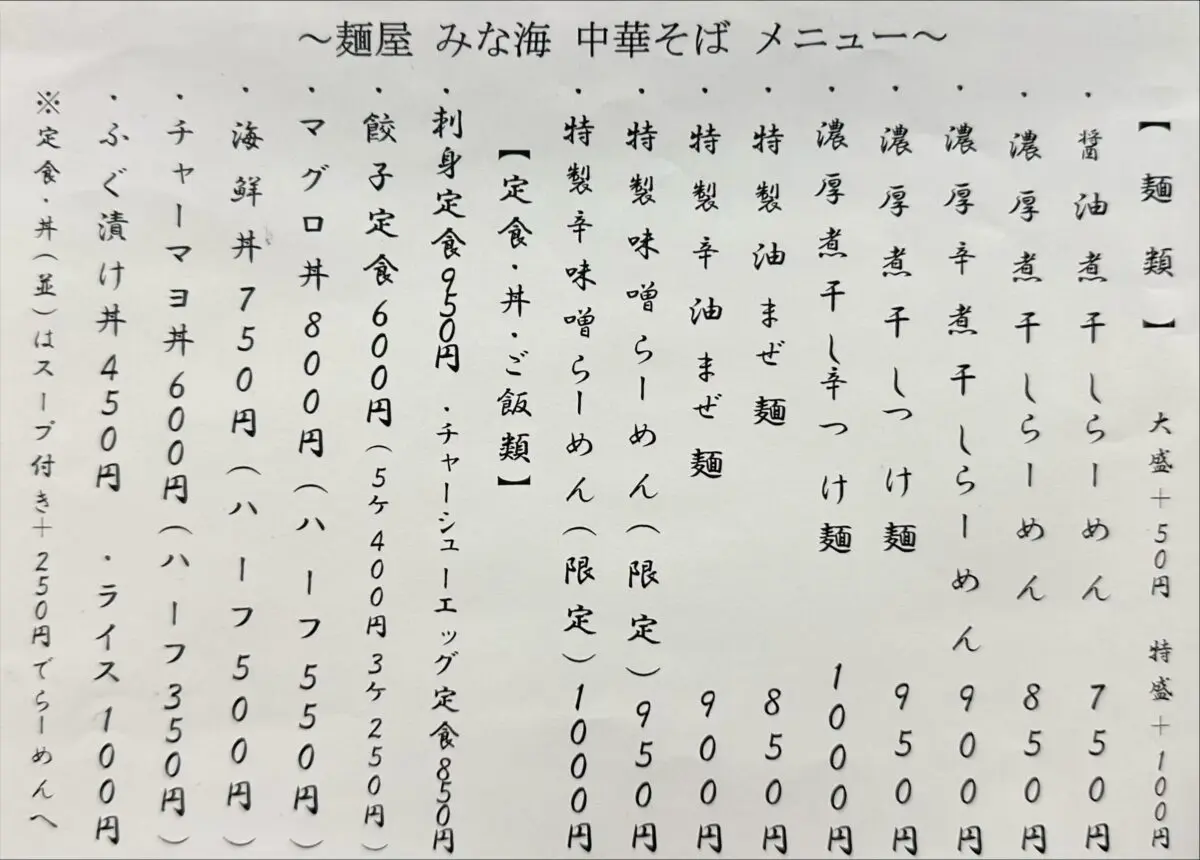 ～麺屋 みな海 中華そば メニュー～
【麺類】 大盛＋50円 特盛＋100円
・醤油煮干しらーめん 750円
・濃厚煮干しらーめん 850円
・濃厚辛煮干しらーめん 900円
・濃厚煮干しつけ麺 950円
・濃厚煮干し辛つけ麺 1000円
・特製油まぜ麺 850円
・特製辛油まぜ麺 900円
・特製味噌らーめん（限定）950円
・特製辛味噌らーめん（限定）1000円
【定食・丼・ご飯類】
・刺身定食950円 ・チャーシューエッグ定食850円
・餃子定食600円（5ヶ400円 3ヶ250円）
・マグロ丼800円（ハーフ550円）
・海鮮丼750円（ハーフ500円）
・チャーマヨ丼600円（ハーフ350円）
・ふぐ漬け丼450円 ・ライス100円
※定食・丼（並）はスープ付き＋250円でらーめんへ